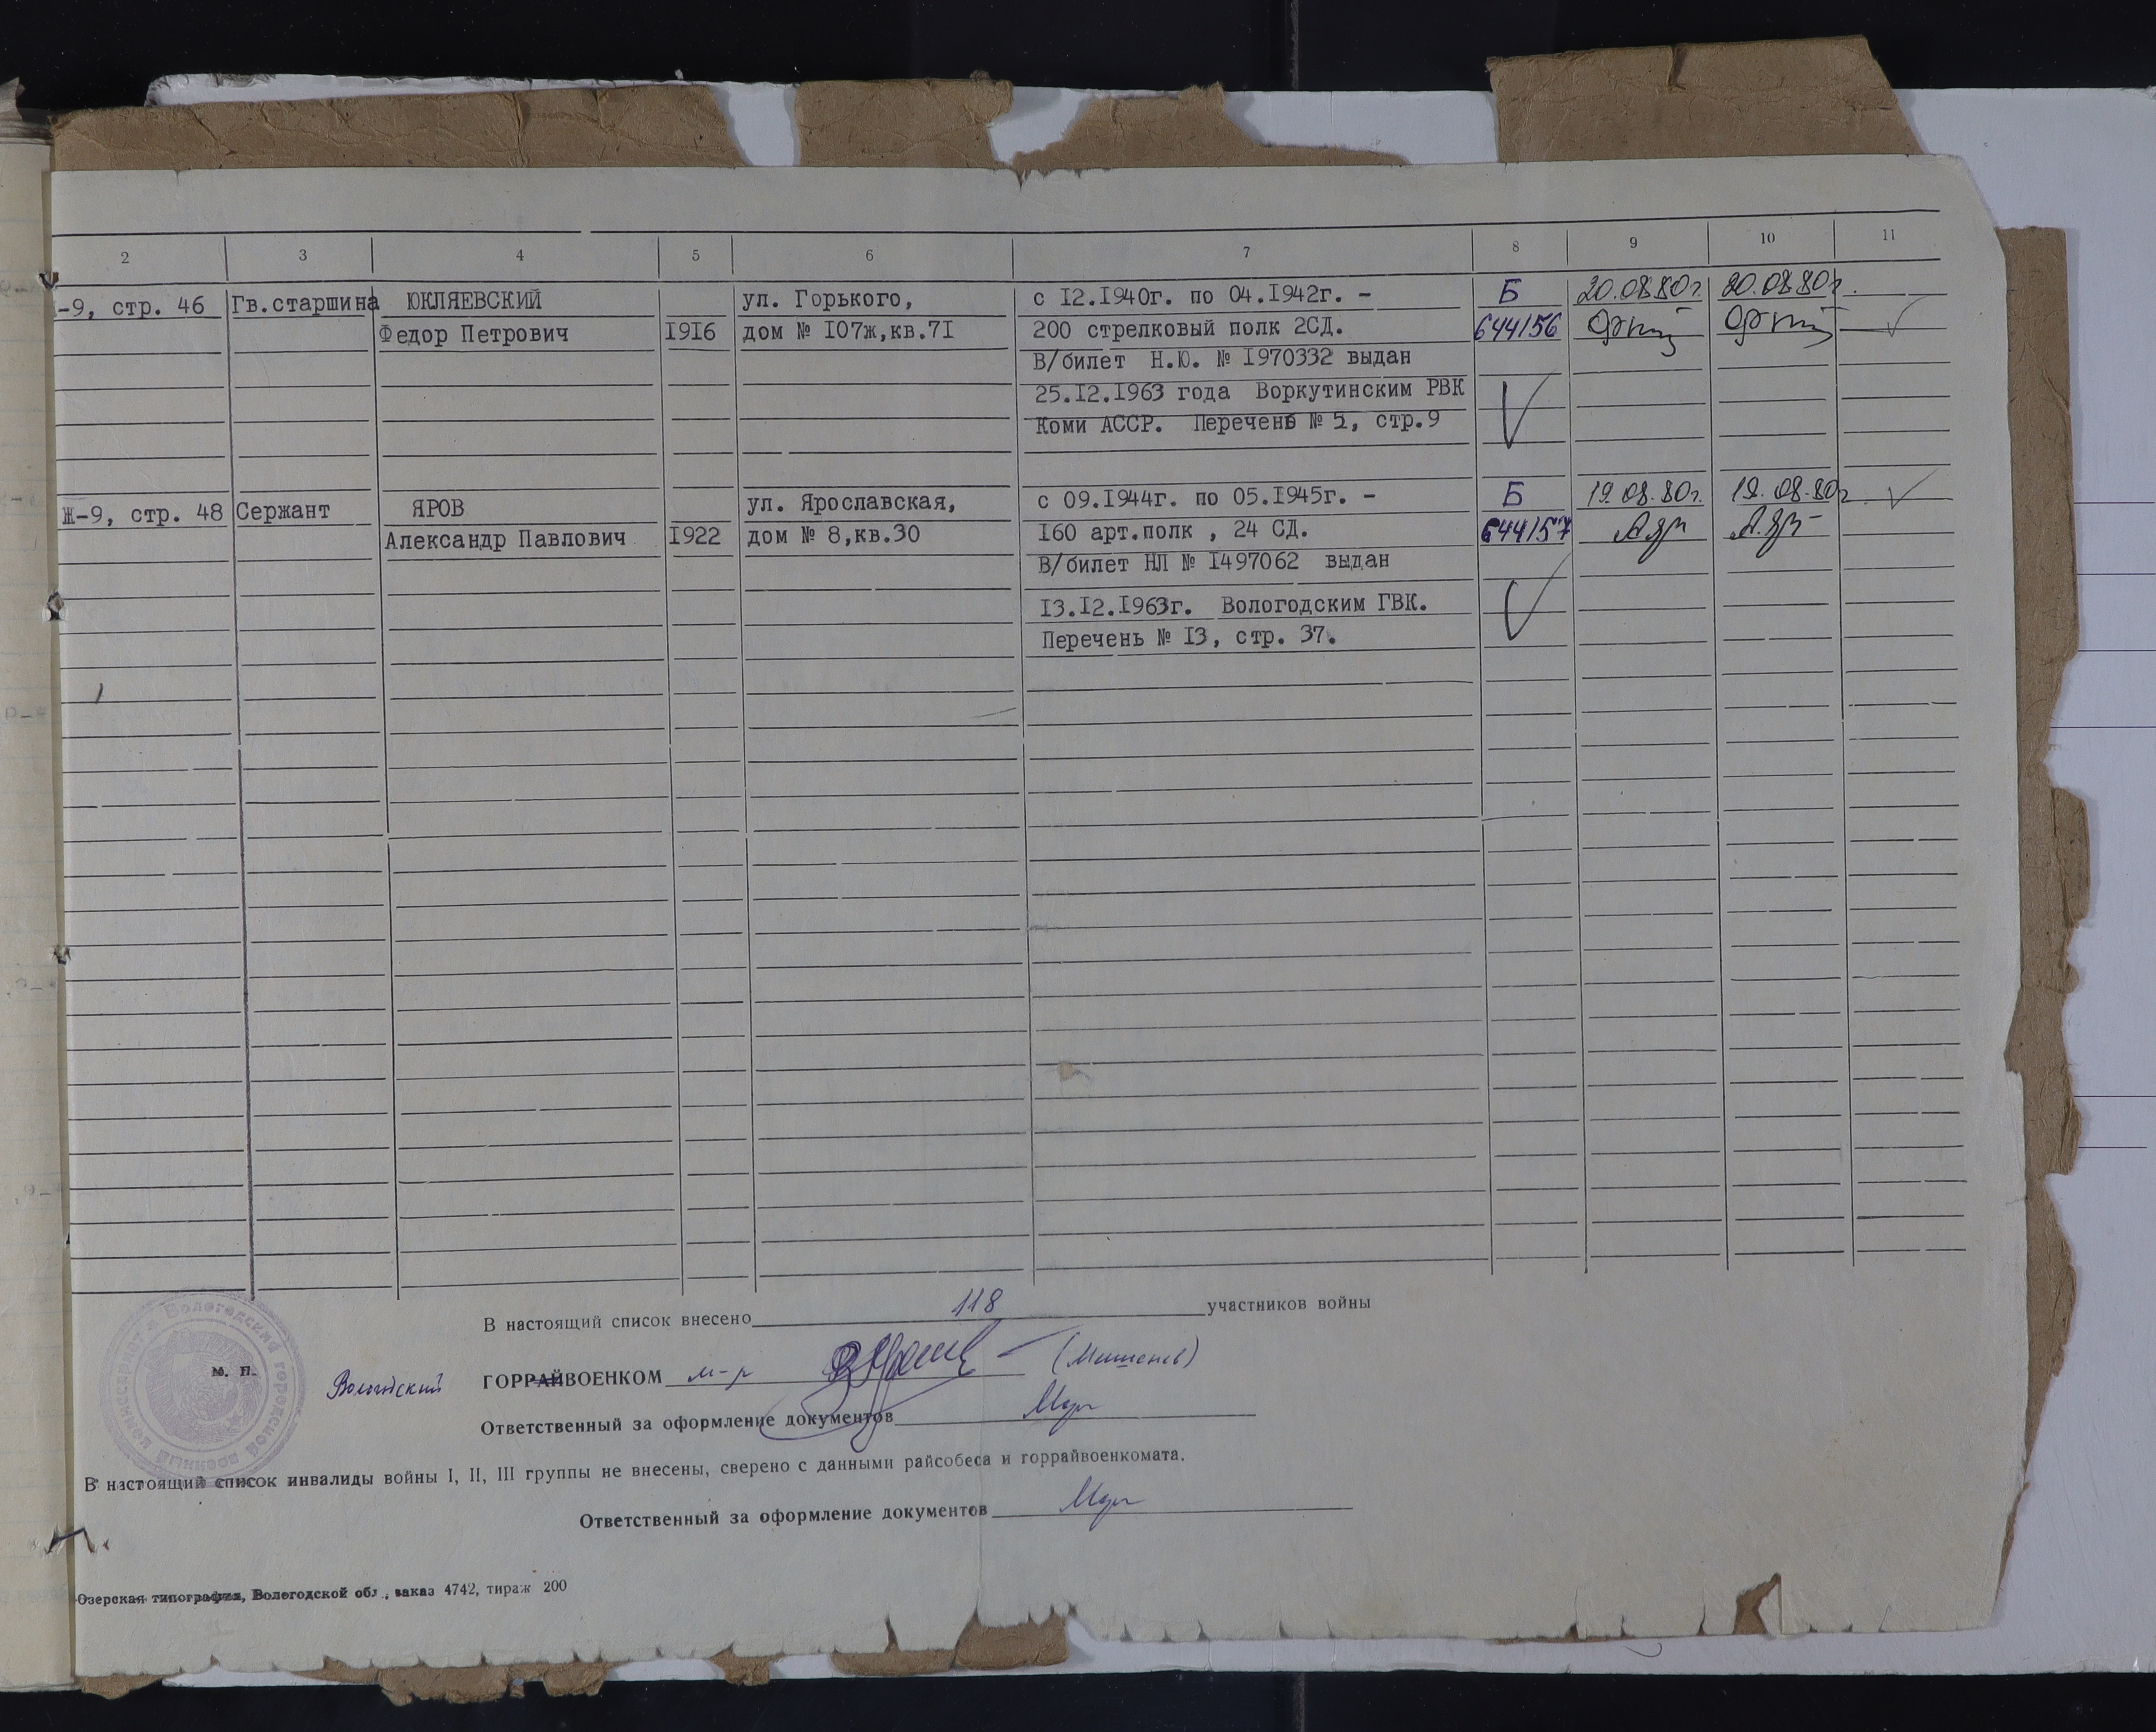 2 3 4 5 6 7 8 9 10 11
-9, стр. 46 Гв.старшина ЮКЛЯЕВСКИЙ ул. Горького, с 12.1940г. по 04.1942г. - Б 20.08.80г. 20.08.80г.
Федор Петрович 1916 дом № 107ж,кв.71 200 стрелковый полк 2СД. 644156
В/билет Н.Ю. № 1970332 выдан
25.12.1963 года Воркутинским РВК
Коми АССР. Перечень № 5, стр.9
Ж-9, стр. 48 Сержант ЯРОВ ул. Ярославская, с 09.1944г. по 05.1945г. - Б 19.08.80г. 19.08.80г.
Александр Павлович 1922 дом № 8,кв.30 160 арт.полк , 24 СД. 644157
В/билет НЛ № 1497062 выдан
13.12.1963г. Вологодским ГВК.
Перечень № 13, стр. 37.
В настоящий список внесено 118 участников войны
м. п. Вологодский ГОРРАЙВОЕНКОМ м-р
Вологодский городской военный комиссариат
Ответственный за оформление документов
В настоящий список инвалиды войны I, II, III группы не внесены, сверено с данными райсобеса и горрайвоенкомата.
Ответственный за оформление документов
Озерская типография, Вологодской обл., заказ 4742, тираж 200